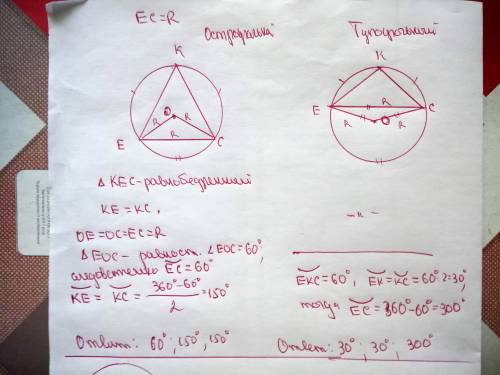 EC=R
Остроугольный
Тупоугольный
K
O
R
R
R
E
C
K
E
C
R
R
R
O
Δ KEC - равнобедренный
KE = KC,
OE=OC=EC=R
Δ EOC - равност. ∠EOC=60°,
следовательно ĔC=60°
K͝E = K͝C = (360°-60°)/2 = 150°
Ответ: 60°; 150°, 150°
- " -
E͝KC=60°, E͝K=K͝C=60°:2=30°,
тогда E͝C=360°-60°=300°
Ответ: 30°; 30°; 300°